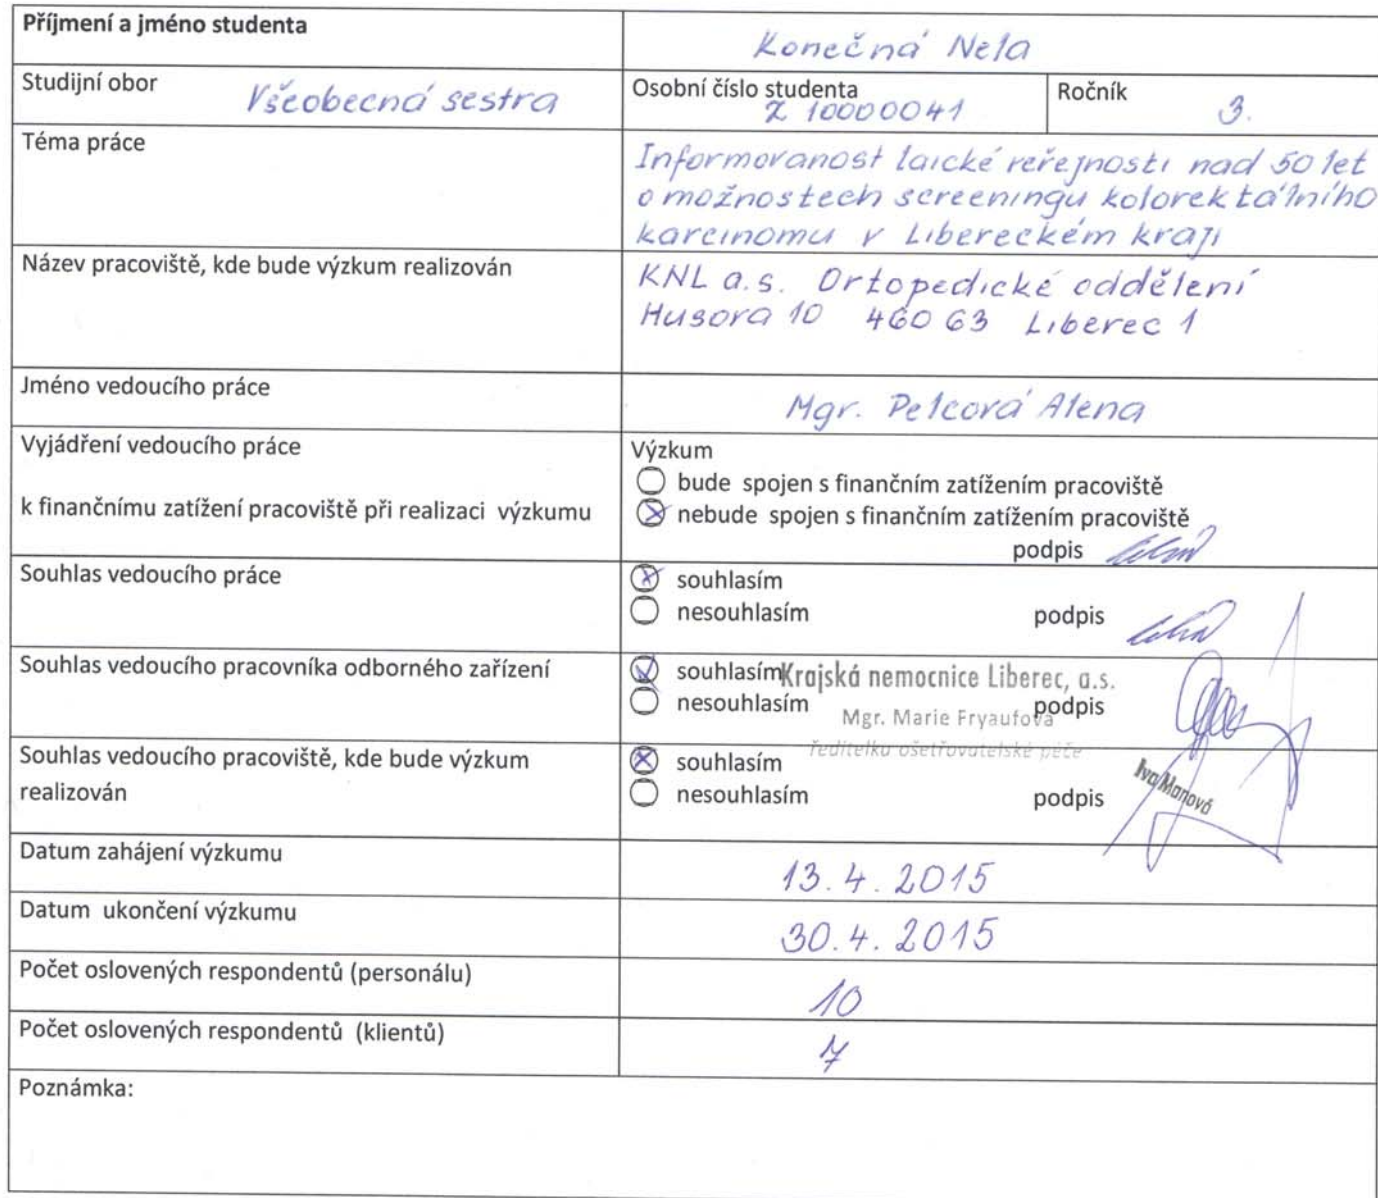 Příjmení a jméno studenta
Konečná Nela
Studijní obor
Všeobecná sestra
Osobní číslo studenta
Z 10000041
Ročník
3.
Téma práce
Informovanost laické veřejnosti nad 50 let
o možnostech screeningu kolorektálního
karcinomu v Libereckém kraji
Název pracoviště, kde bude výzkum realizován
KNL a.s. Ortopedické oddělení
Husova 10 460 63 Liberec 1
Jméno vedoucího práce
Mgr. Pelcová Alena
Vyjádření vedoucího práce
k finančnímu zatížení pracoviště při realizaci výzkumu
Výzkum
bude spojen s finančním zatížením pracoviště
nebude spojen s finančním zatížením pracoviště
podpis
Souhlas vedoucího práce
souhlasím
nesouhlasím
podpis
Souhlas vedoucího pracovníka odborného zařízení
souhlasím
Krajská nemocnice Liberec, a.s.
nesouhlasím
podpis
Mgr. Marie Fryaufová
ředitelka ošetřovatelské péče
Souhlas vedoucího pracoviště, kde bude výzkum
realizován
souhlasím
nesouhlasím
podpis
Iva Manová
Datum zahájení výzkumu
13.4.2015
Datum ukončení výzkumu
30.4.2015
Počet oslovených respondentů (personálu)
10
Počet oslovených respondentů (klientů)
7
Poznámka: